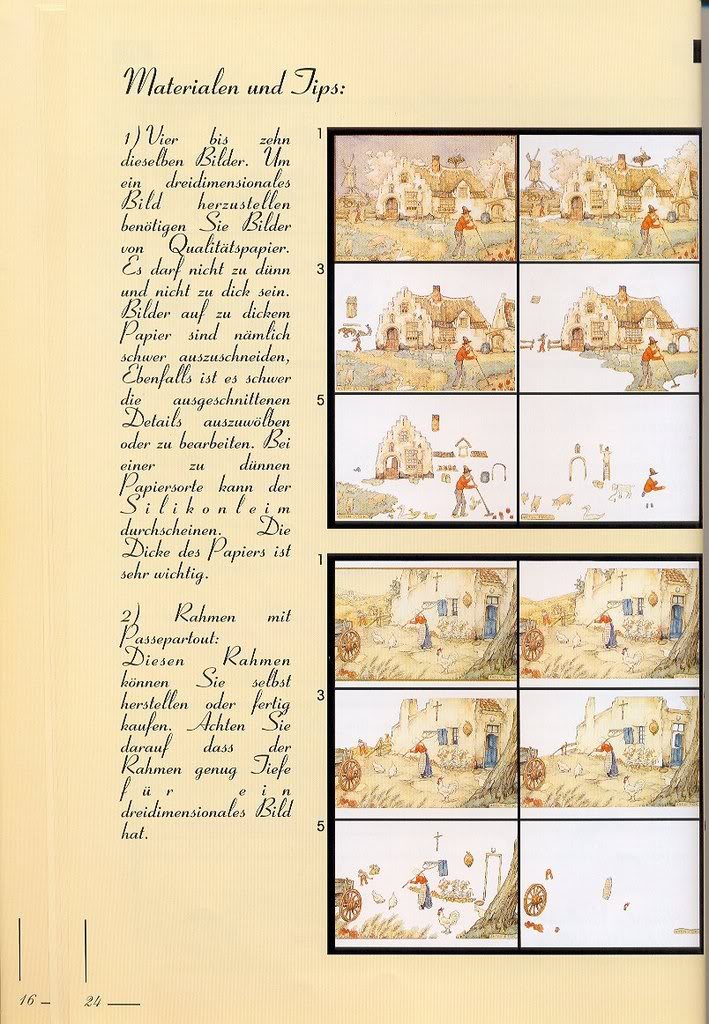 Materialen und Tips:
1) Vier bis zehn
dieselben Bilder. Um
ein dreidimensionales
Bild herzustellen
benötigen Sie Bilder
von Qualitätspapier.
Es darf nicht zu dünn
und nicht zu dick sein.
Bilder auf zu dickem
Papier sind nämlich
schwer auszuschneiden,
Ebenfalls ist es schwer
die ausgeschnittenen
Details auszuwölben
oder zu bearbeiten. Bei
einer zu dünnen
Papiersorte kann der
Silikonleim
durchscheinen. Die
Dicke des Papiers ist
sehr wichtig.
2) Rahmen mit
Passepartout:
Diesen Rahmen
können Sie selbst
herstellen oder fertig
kaufen. Achten Sie
darauf dass der
Rahmen genug Tiefe
für ein
dreidimensionales Bild
hat.
1
3
5
1
3
5
16
24